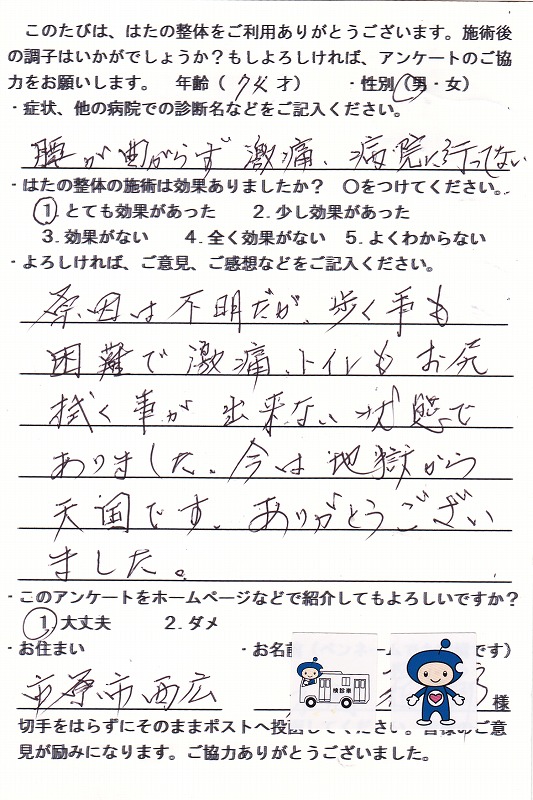 このたびは、はたの整体をご利用ありがとうございます。施術後
の調子はいかがでしょうか？もしよろしければ、アンケートのご協
力をお願いします。　年齢（ 才）　・性別（男・女）
・症状、他の病院での診断名などをご記入ください。
腰が曲がらず 激痛、病院に行ってない
・はたの整体の施術は効果ありましたか？　〇をつけてください。
1. とても効果があった　2. 少し効果があった
3. 効果がない　4. 全く効果がない　5. よくわからない
・よろしければ、ご意見、ご感想などをご記入ください。
原因は不明だが、歩く事も
困難で激痛、トイレもお尻
拭く事が出来ない状態で
ありました。今は地獄から
天国です。ありがとうござい
ました。
・このアンケートをホームページなどで紹介してもよろしいですか？
1. 大丈夫　2. ダメ
・お住まい　・お名前 です）
市原市西広 様
検診車
切手をはらずにそのままポストへ投函してください。皆様のご意
見が励みになります。ご協力ありがとうございました。